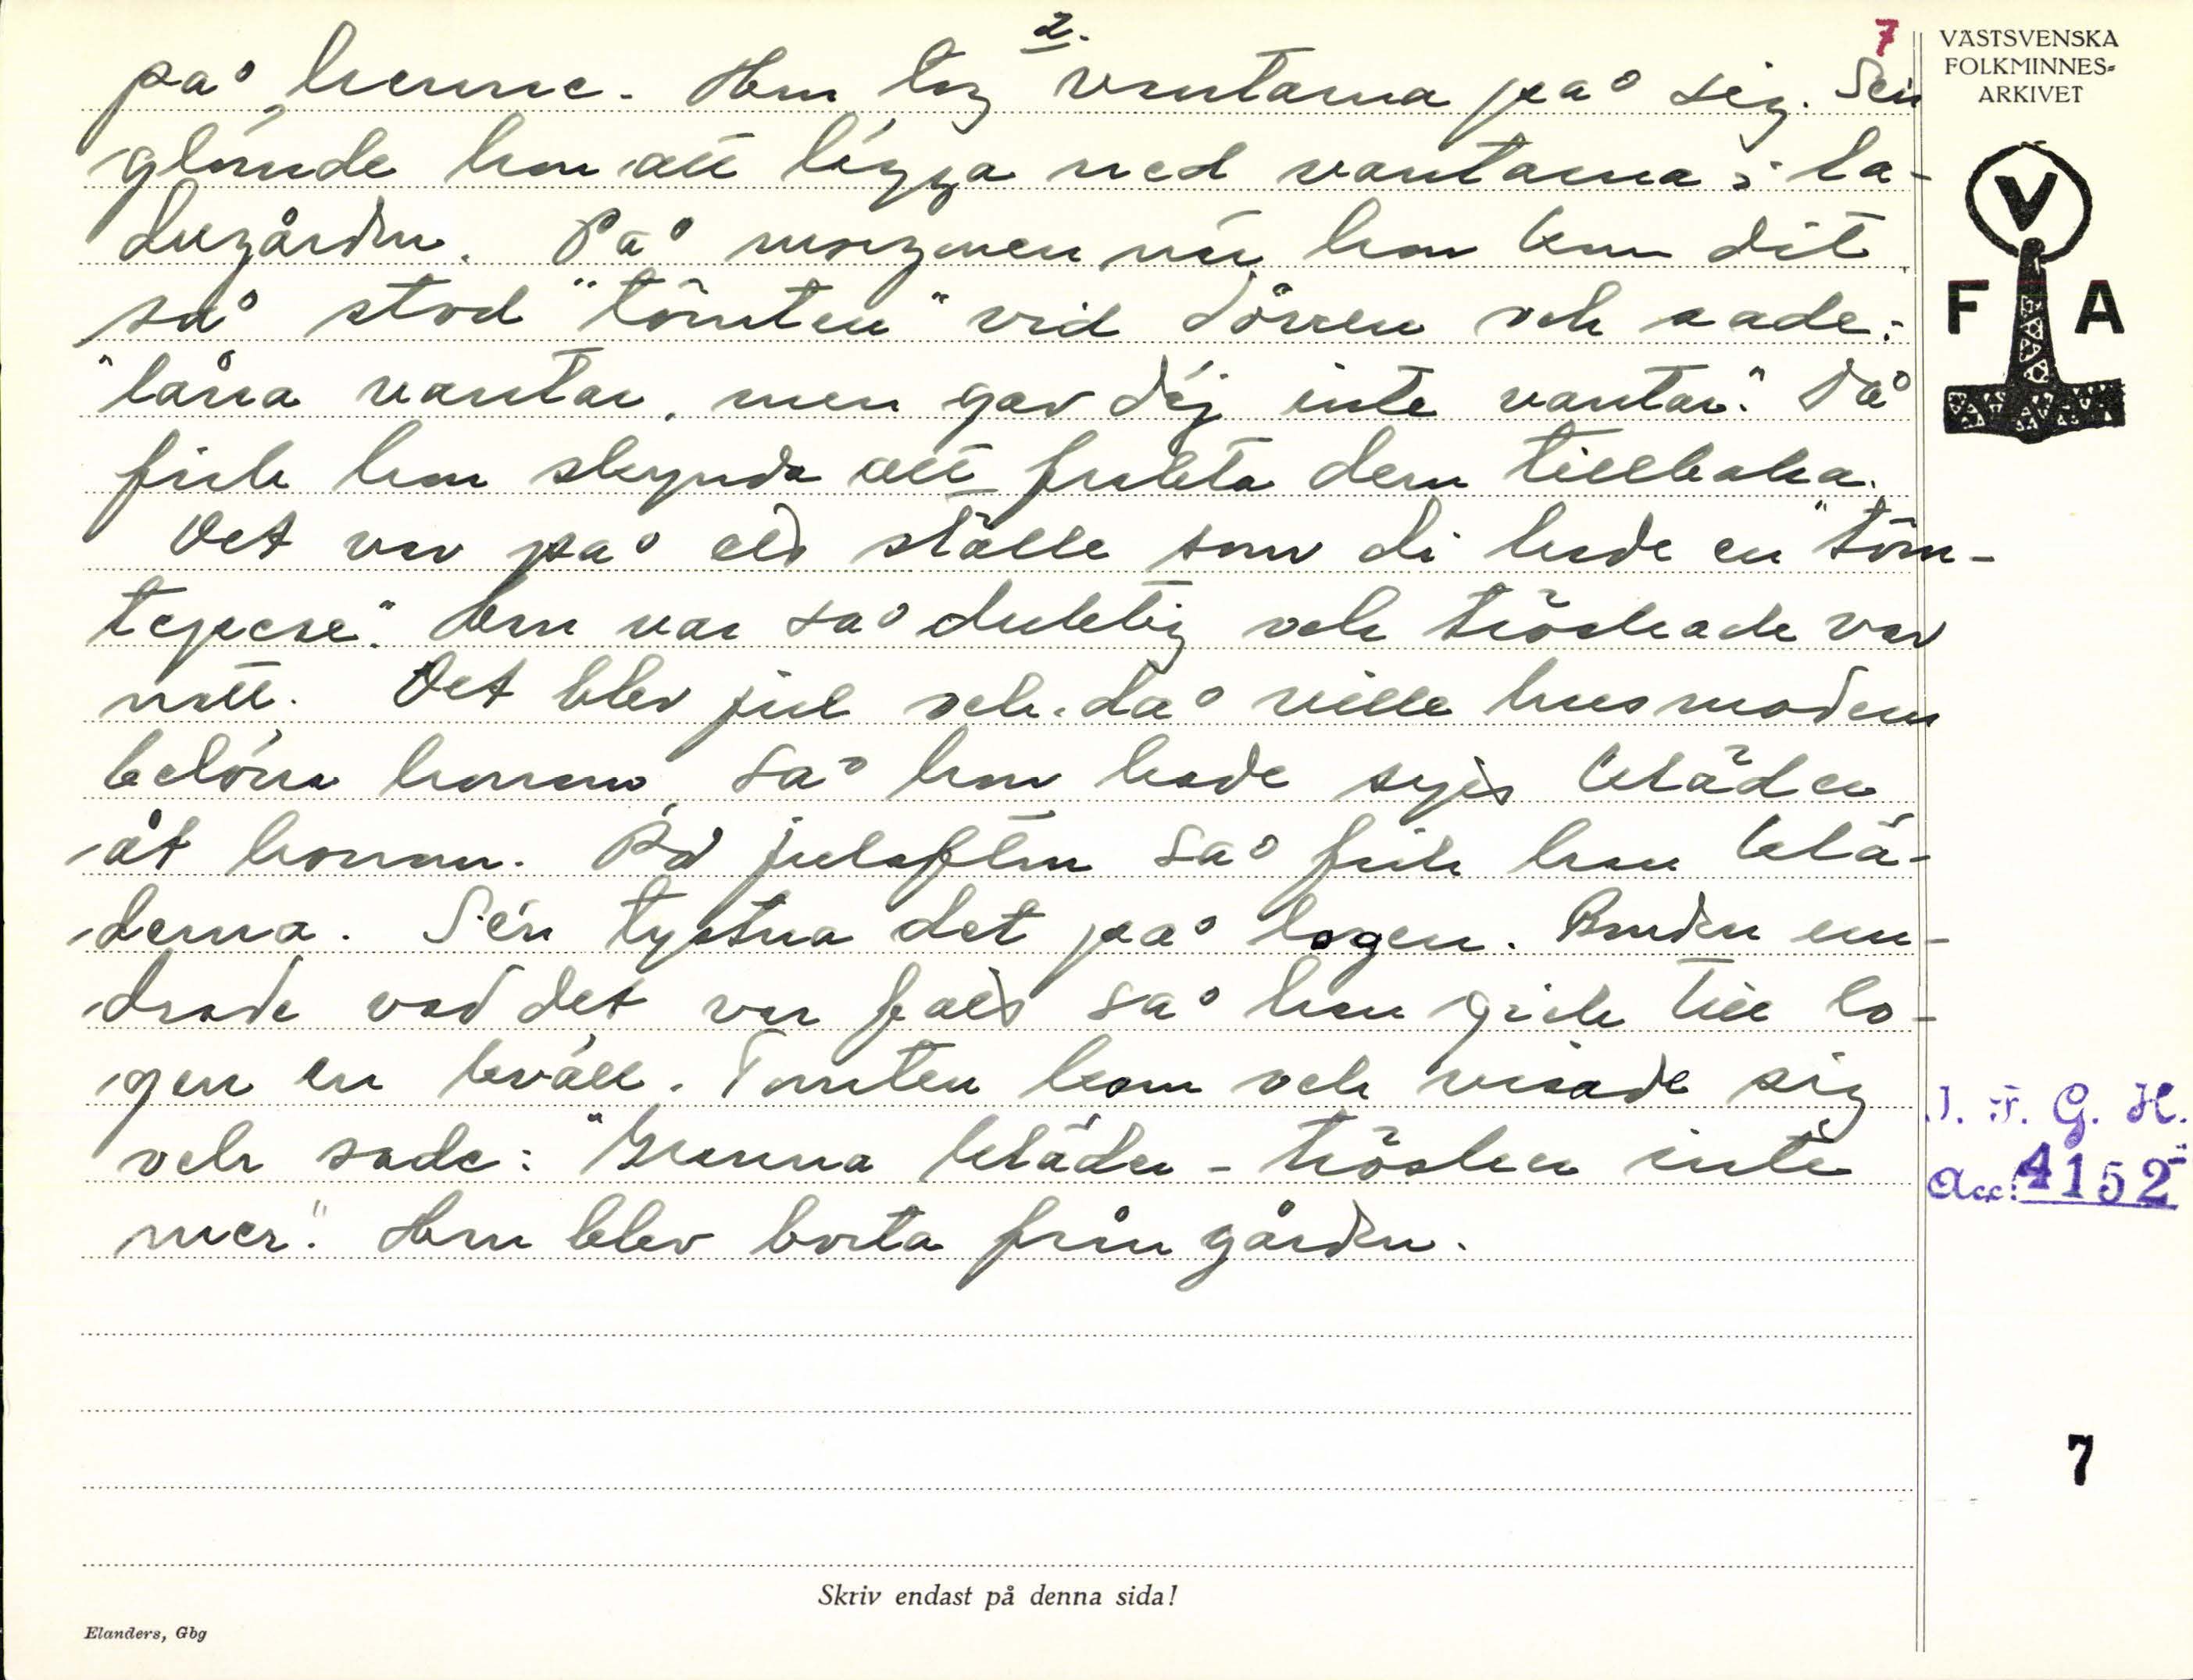 2.
7
på henne. Hon tog vantarna på sig. Sen
glömde hon att lägga ned vantarna i la-
dugården. På morgonen när hon kom dit
så stod "tömten" vid dörren och sade:
"låna vantar, men gav dej inte vantar." Då
fick hon skynda att frakta dem tillbaka.
Det var på ett ställe som di hade en "töm-
tepese". Hon var så duktig och tröskade var
natt. Det blev jul och då ville husmodern
belöna honom, så hon hade sytt kläder
åt honom. På julafton så fick han klä-
derna. Sén tystna det på logen. Bonden un-
drade vad det var fatt så han gick till lo-
gen en kväll. Tomten kom och visade sig
och sade: "Granna kläder - trösker inte
mer." Han blev borta från gården.
VÄSTSVENSKA
FOLKMINNES-
ARKIVET
V
F A
I. F. G. H.
Acc: 4152
7
Skriv endast på denna sida!
Elanders, Gbg